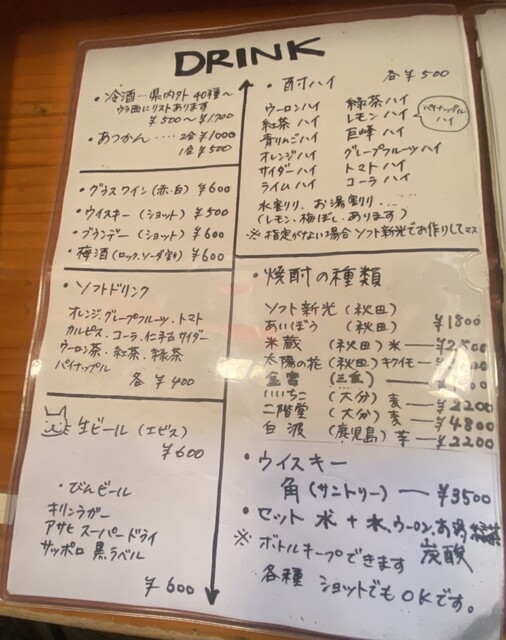 DRINK
・冷酒…県内外 40種～
ウラ面にリストあります
¥500～¥1,700
・あつかん‥‥2合 ¥1000
1合 ¥500
・グラスワイン(赤・白) ¥600
・ウイスキー(ショット) ¥500
・ブランデー(ショット) ¥600
・梅酒(ロック、ソーダ割り) ¥600
・ソフトドリンク
オレンジ、グレープフルーツ、トマト
カルピス、コーラ、仁手古サイダー
ウーロン茶・紅茶、緑茶
パイナップル
各 ¥400
生ビール(エビス)
¥600
・びんビール
キリンラガー
アサヒ スーパードライ
サッポロ 黒ラベル
¥600
・酎ハイ 各 ¥500
ウーロンハイ 緑茶ハイ
紅茶ハイ レモンハイ
パイナップルハイ
青りんごハイ 巨峰ハイ
オレンジハイ グレープフルーツハイ
サイダーハイ トマトハイ
ライムハイ コーラハイ
水割り、お湯割り・・・
(レモン、梅ぼし、あります)
※指定がない場合ソフト新光でお作りしてマス
・焼酎の種類
ソフト新光(秋田)
あいぼう(秋田) ¥1800
米蔵(秋田)米
太陽の花(秋田)キクイモ
金宮(三重)
いいちこ(大分)麦 ¥2200
二階堂(大分)麦 ¥4800
白波(鹿児島)芋 ¥2200
・ウイスキー
角(サントリー) ¥3500
・セット 水+氷、ウーロン、お湯、緑茶
炭酸
※ボトルキープできます
各種 ショットでもOKです。